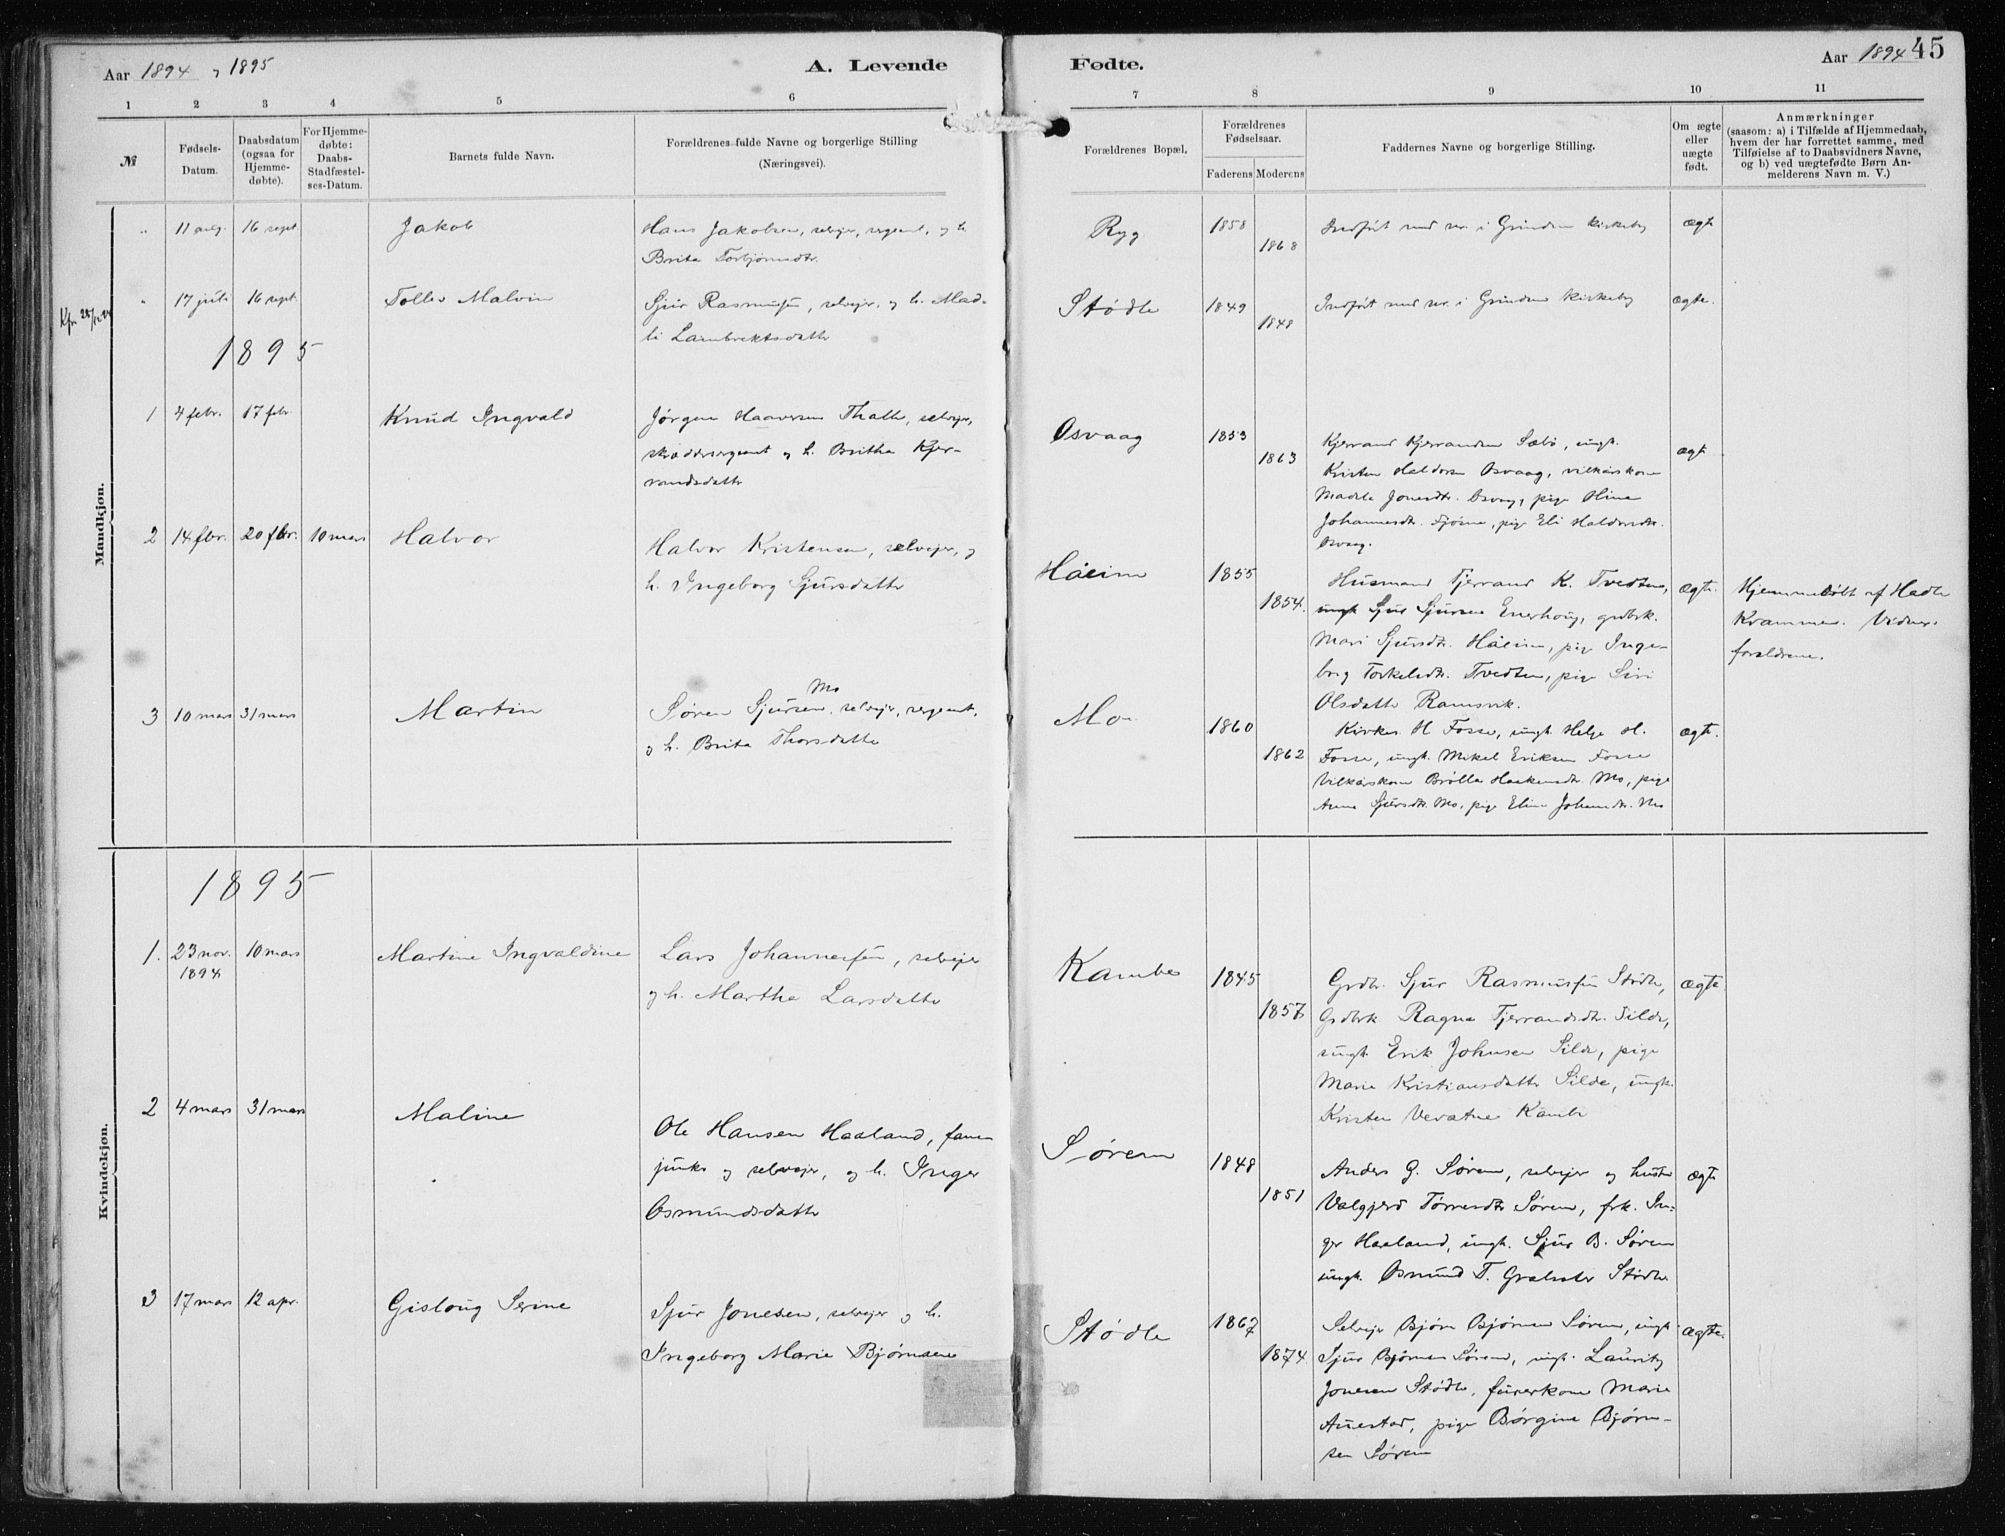 Aar 1894, 1895
A. Levende
Fødte.
Aar 1894
45
1 2 3 4 5 6 7 8 9 10 11
№
Fødsels-
Datum.
Daabsdatum
(ogsaa for
Hjemme-
døbte).
For Hjemme-
døbte:
Daabs-
Stadfæstel-
ses-Datum.
Barnets fulde Navn.
Forældrenes fulde Navne og borgerlige Stilling
(Næringsvei).
Forældrenes Bopæl.
Forældrenes
Fødselsaar.
Faderens Moderens
Faddernes Navne og borgerlige Stilling.
Om ægte
eller
uægte
født.
Anmærkninger
(saasom: a) i Tilfælde af Hjemmedaab,
hvem der har forrettet samme, med
Tilføielse af to Daabsvidners Navne,
og b) ved uægtefødte Børn An-
melderens Navn m. V.)
Mandkjøn.
" 11 aug. 16 sept. Jakob
Hans Jakobsen, selvejer, sergeant, og h.
Brita Torbjørnsdtr.
Ryg 1858 1868
Indført med nr. i Grinden kirkebog
ægte
" 17 juli 16 sept. Tollev Malvin
Sjur Rasmussen, selvejer, og h. Mad-
li Lambrektsdatter
Stødle 1849 1848
Indført med nr. i Grinden kirkebog
ægte.
1895
1 4 febr. 17 febr. Knud Ingvald
Jørgen Haaversen Thatle, selvejer,
skræddersergeant og h. Britha Kjer-
randsdatter
Osvaag 1853 1863
Kjerrand Kjerrandsen Sæbø, ungk.
Kristen Haldorsen Osvaag, vilkårskone
Madele Jonesdtr. Osvag, pige Stine
Johannesdtr. Fjøsne, pige Eli Haldorsdtr.
Osvaag.
ægte
2 14 febr. 20 febr. 10 mars Halvor
Halvor Kristensen, selvejer, og
h. Ingeborg Sjursdatter
Håeim 1855 1854.
Husmand Tjerrand K. Tvedten,
ungk Sjur Sjursen Enerhoug, grdbrk.
Mari Sjursdtr. Håeim, pige Inge-
borg Torkelsdtr. Tvedten, pige Siri
Olsdatter Ramsvik.
ægte.
Hjemmedøbt af Hadle
Krammer. Vidner.
forældrene.
3 10 mars 31 mars Martin
Søren Sjursen Mo selvejer, sergeant,
og h. Brita Thorsdatter
Mo 1860 1862
Kirkes. H Fosse, ungk. Helge H.
Fosse, ungk. Mikal Eriksen Fosse
Vilkårskone Brølla Haakensdtr. Mo, pige
Anna Sjursdtr. Mo, pige Elin Johansdtr. Mo
ægte.
Kvindekjøn.
1895
1. 23 nov. 1894 10 mars Martine Ingvaldine
Lars Johannesen, selvejer
og h. Martha Larsdatter
Kambe 1845 1857
Grdbr. Sjur Rasmussen Stødle,
Grdbrk. Ragna Tjerrandsdtr. Silde,
ungk. Erik Johnsen Silde, pige
Marie Kristiansdatter Silde, ungk.
Kristen Vevatne Kambe
ægte.
2 4 mars 31 mars Maline
Ole Hansen Haaland, fane-
junker og selvejer, og h. Inger
Osmundsdatter
Sørem 1848 1851
Anders G. Sørem, selvejer og hustru
Valgjerd Tørresdtr Sørem, frk. In-
ger Haaland, ungk. Sjur B. Sørem
ungk. Osmund T. Stødle
ægte
3 17 mars 12 apr. Gisloug Serine
Sjur Jonesen, selvejer og h.
Ingeborg Marie Bjørnsen
Stødle 1867 1874
Selvejer Bjørn Bjørnsen Sørem, ungk.
Sjur Bjørnsen Sørem, ungk. Lauritz
Jonesen Stødle, furerkone Marie
Auestad, pige Børgine Bjørn-
sen Sørem
ægte.